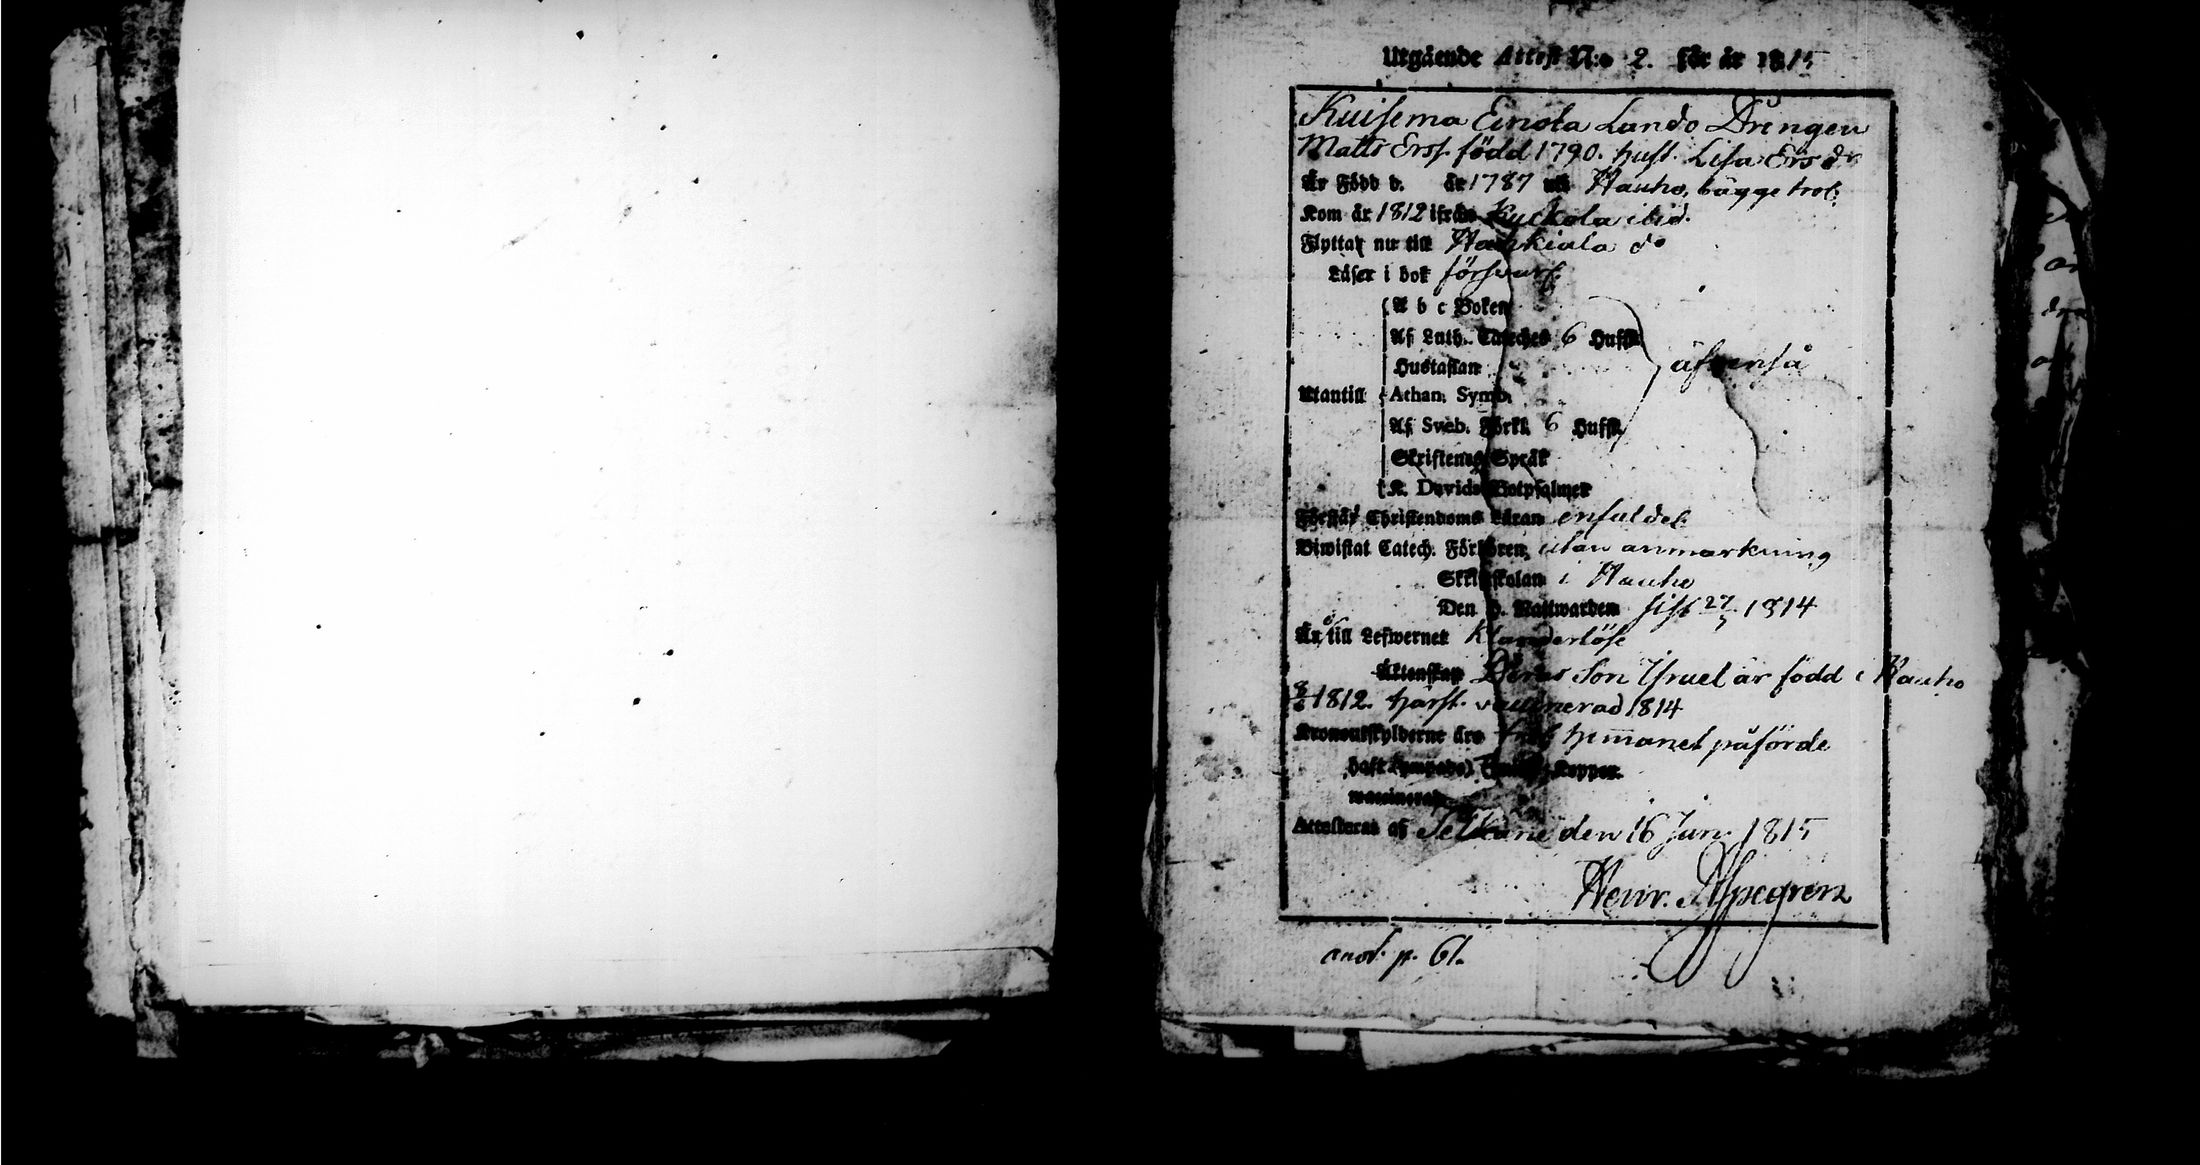 Utgående Attest N:o 2. för år 1815
Kuisema Einola Lando Drengen
Matts Ersf. född 1790. hust. Lisa Ersdr
Är Född d. år 1787 uti Hauho, bägge trol.
Kom år 1812 ifrån Kuckola ibid.
Flyttar nu till Hankiala do
Läser i bok försvarl.
A b c Boken
Af Luth. Cateches 6 Hufst.
Hustaflan
äfvenså
Utantill Athan. Symb.
Af Sveb. Förkl. 6 Hufst.
Skriftenes Språk
K. Davids Botpsalmer
Förstår Christendoms Läran enfaldel.
Biwistat Catech. Förhören, utan anmärkning
Skriftskolan i Hauho
Den H. Nattwarden sist 27/3 1814
Är till Lefwernet Klanderlöse
Äktenskap Deras Son Isruel är född i Hauho
8/6 1812. härst. vaccinerad 1814
Kronoutskylderne äro hemmanet påförde
haft Koppor.
waccinerad
Attesteras af Selkäne den 16 Jun. 1815
Henr. Alpegren
anot. p. 61.